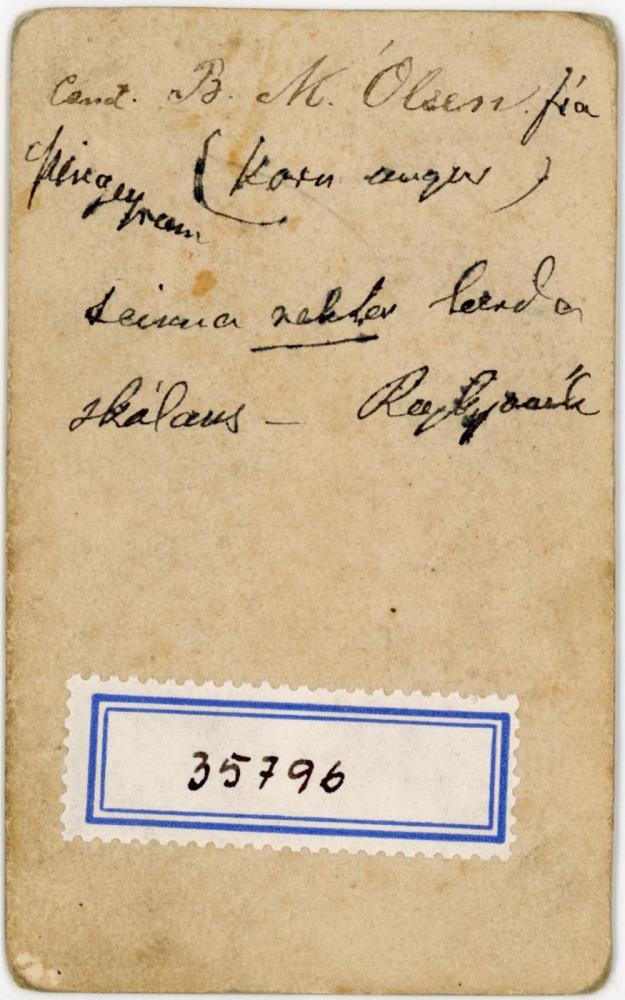 Cand. B. M. Ólsen frá
Þingeyrum (korn ungur)
seinna rektor lærda
skólans – Reykjavik
35796